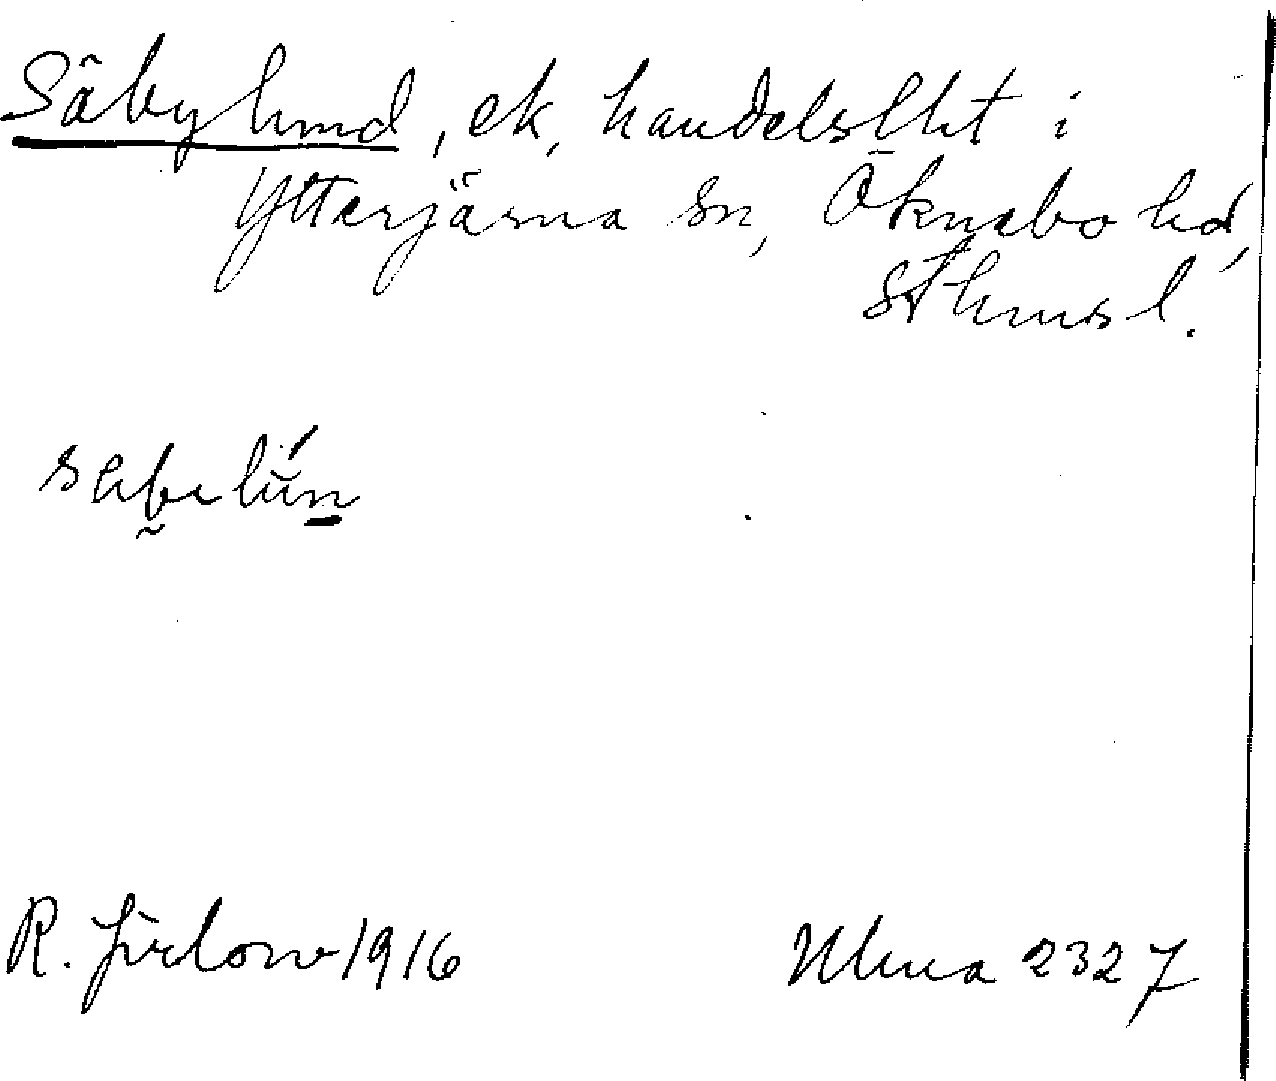 Säbylund, ek, handelslht i
Ytterjärna sn, Öknebo hd,
Sthms l.
R. Jirlow 1916
Ulma 2327